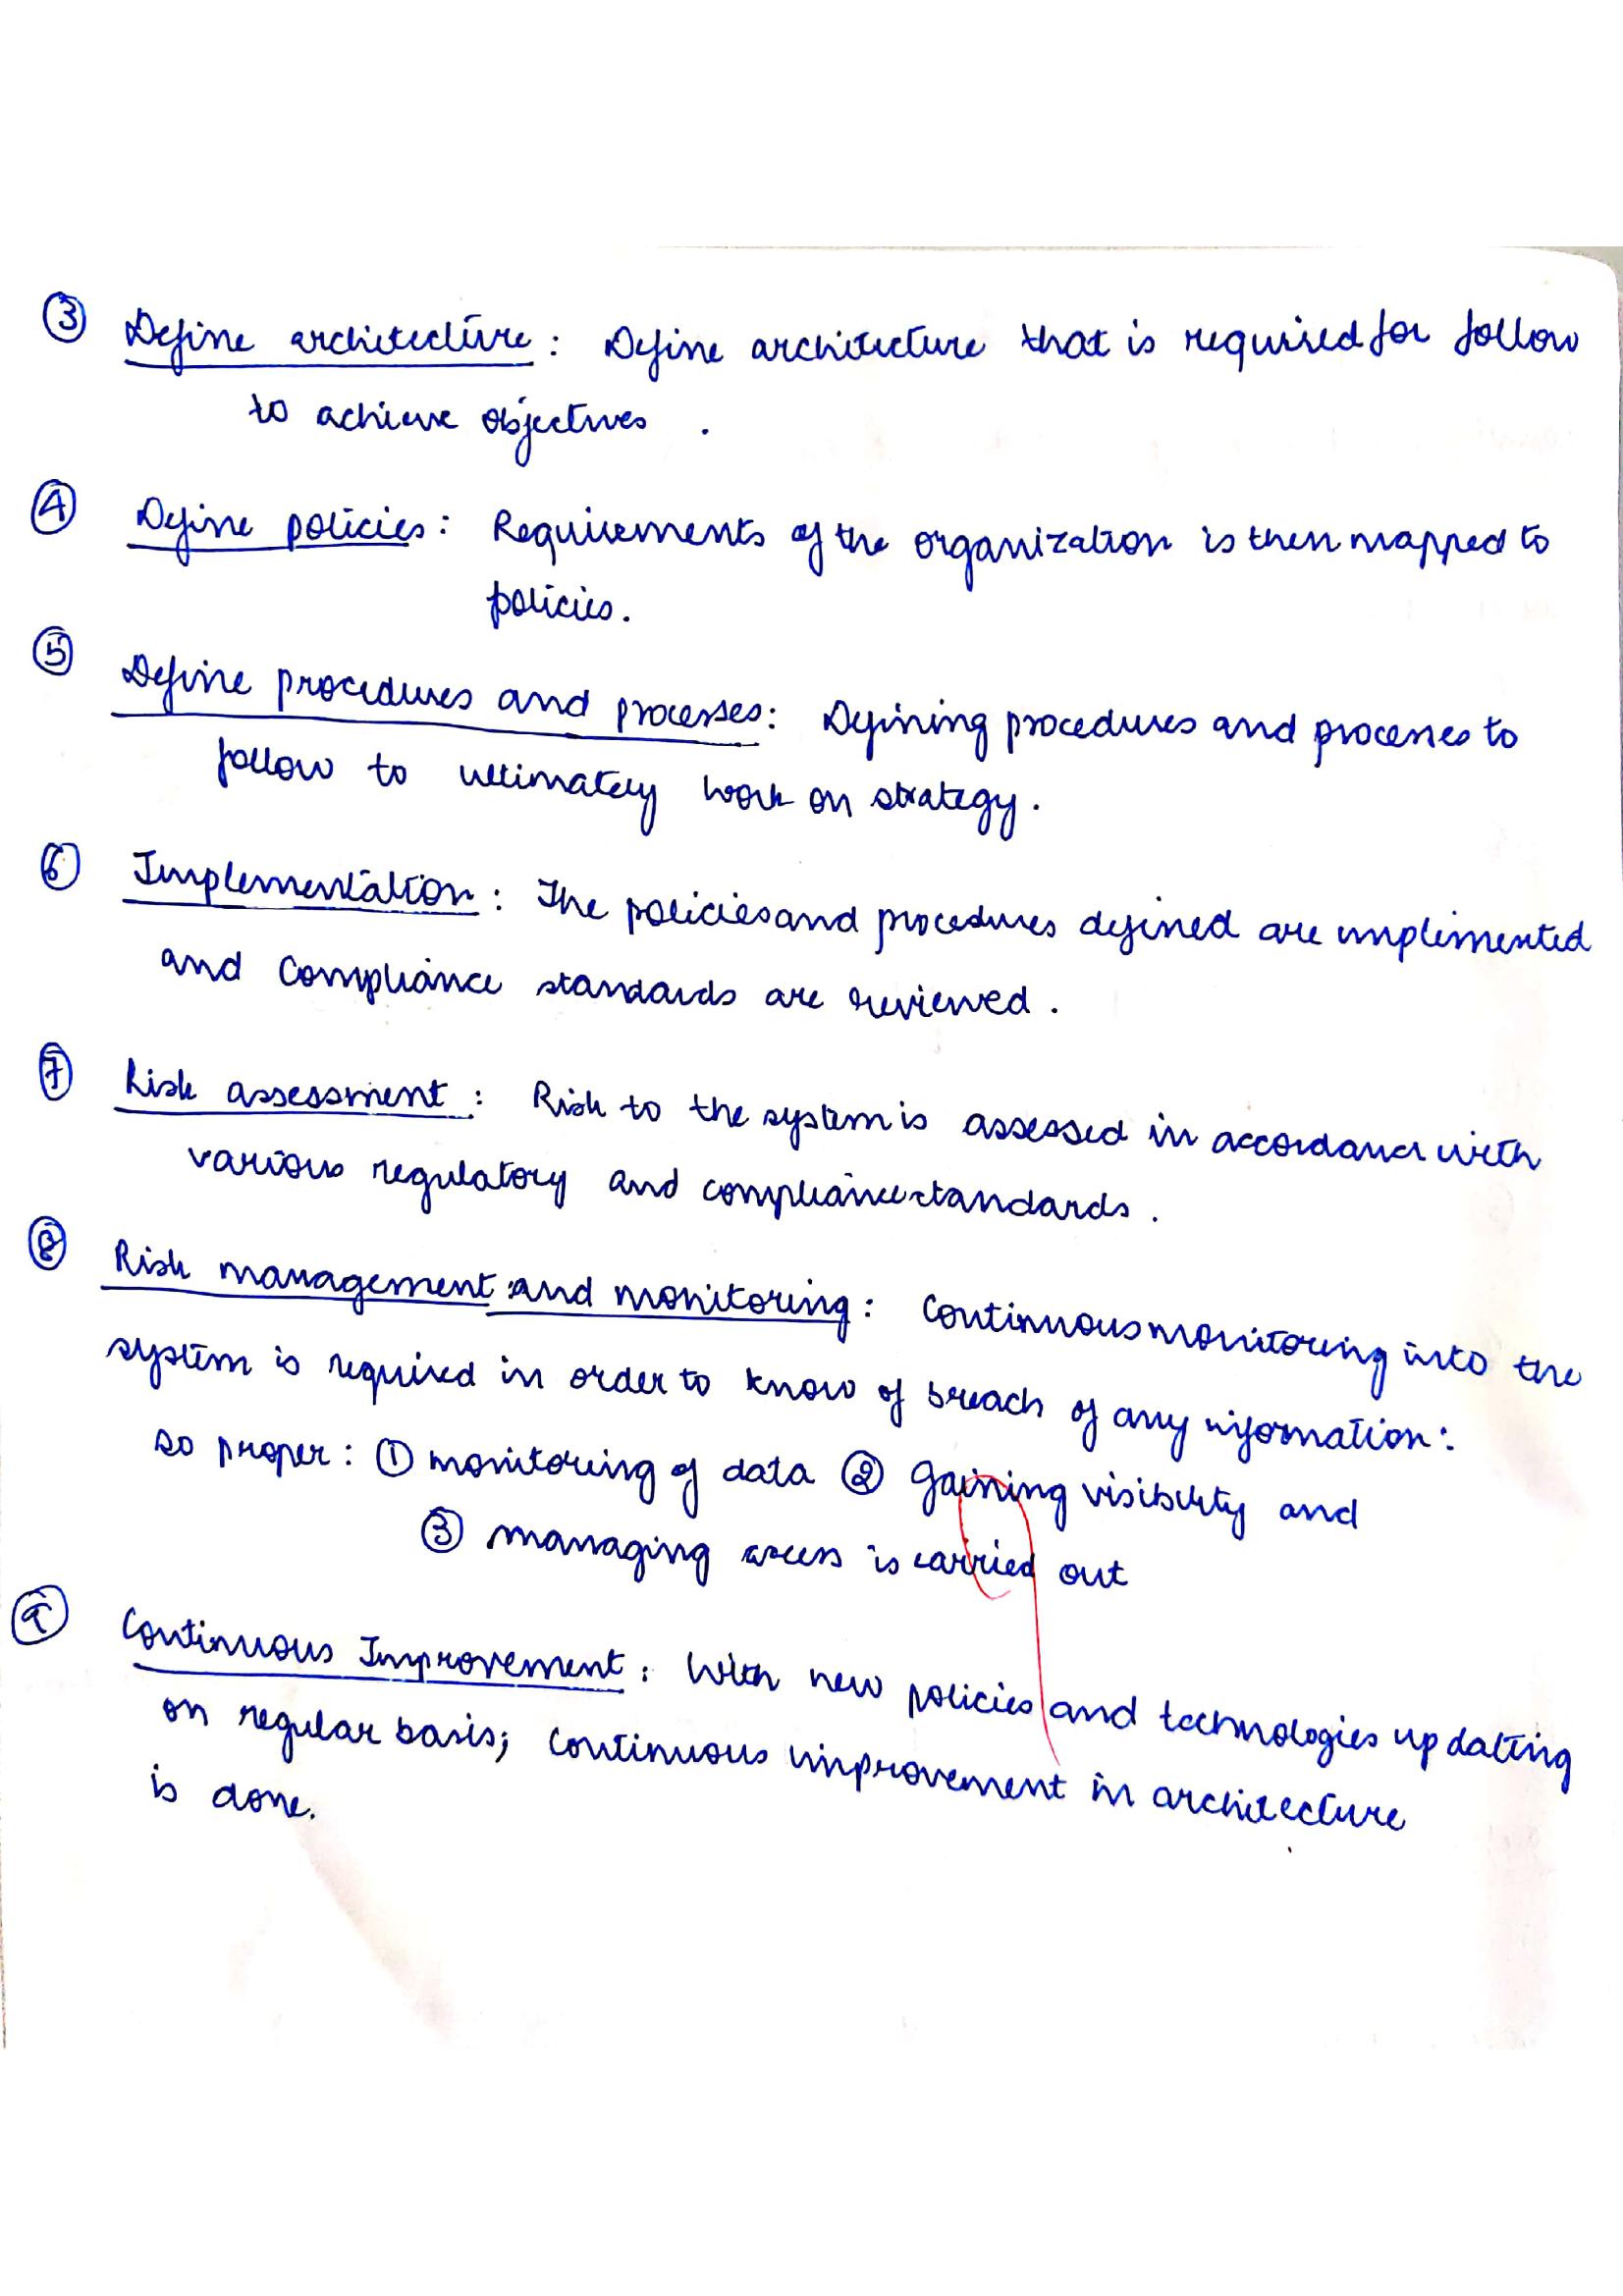 ③ Define architecture : Define architecture that is required for follow
to achieve objectives .
④ Define policies : Requirements of the organization is then mapped to
policies.
⑤ Define procedures and processes : Defining procedures and processes to
follow to ultimately work on strategy.
⑥ Implementation : The policies and procedures defined are implimented
and compliance standards are reviewed .
⑦ Risk assessment : Risk to the system is assessed in accordance with
various regulatory and compliance standards .
⑧ Risk management and monitoring : Continuous monitoring into the
system is required in order to know of breach of any information :
so proper : ① monitoring of data ② gaining visibility and
③ managing access is carried out
⑨ Continuous Improvement : With new policies and technologies updating
on regular basis; continuous improvement in architecture
is done.